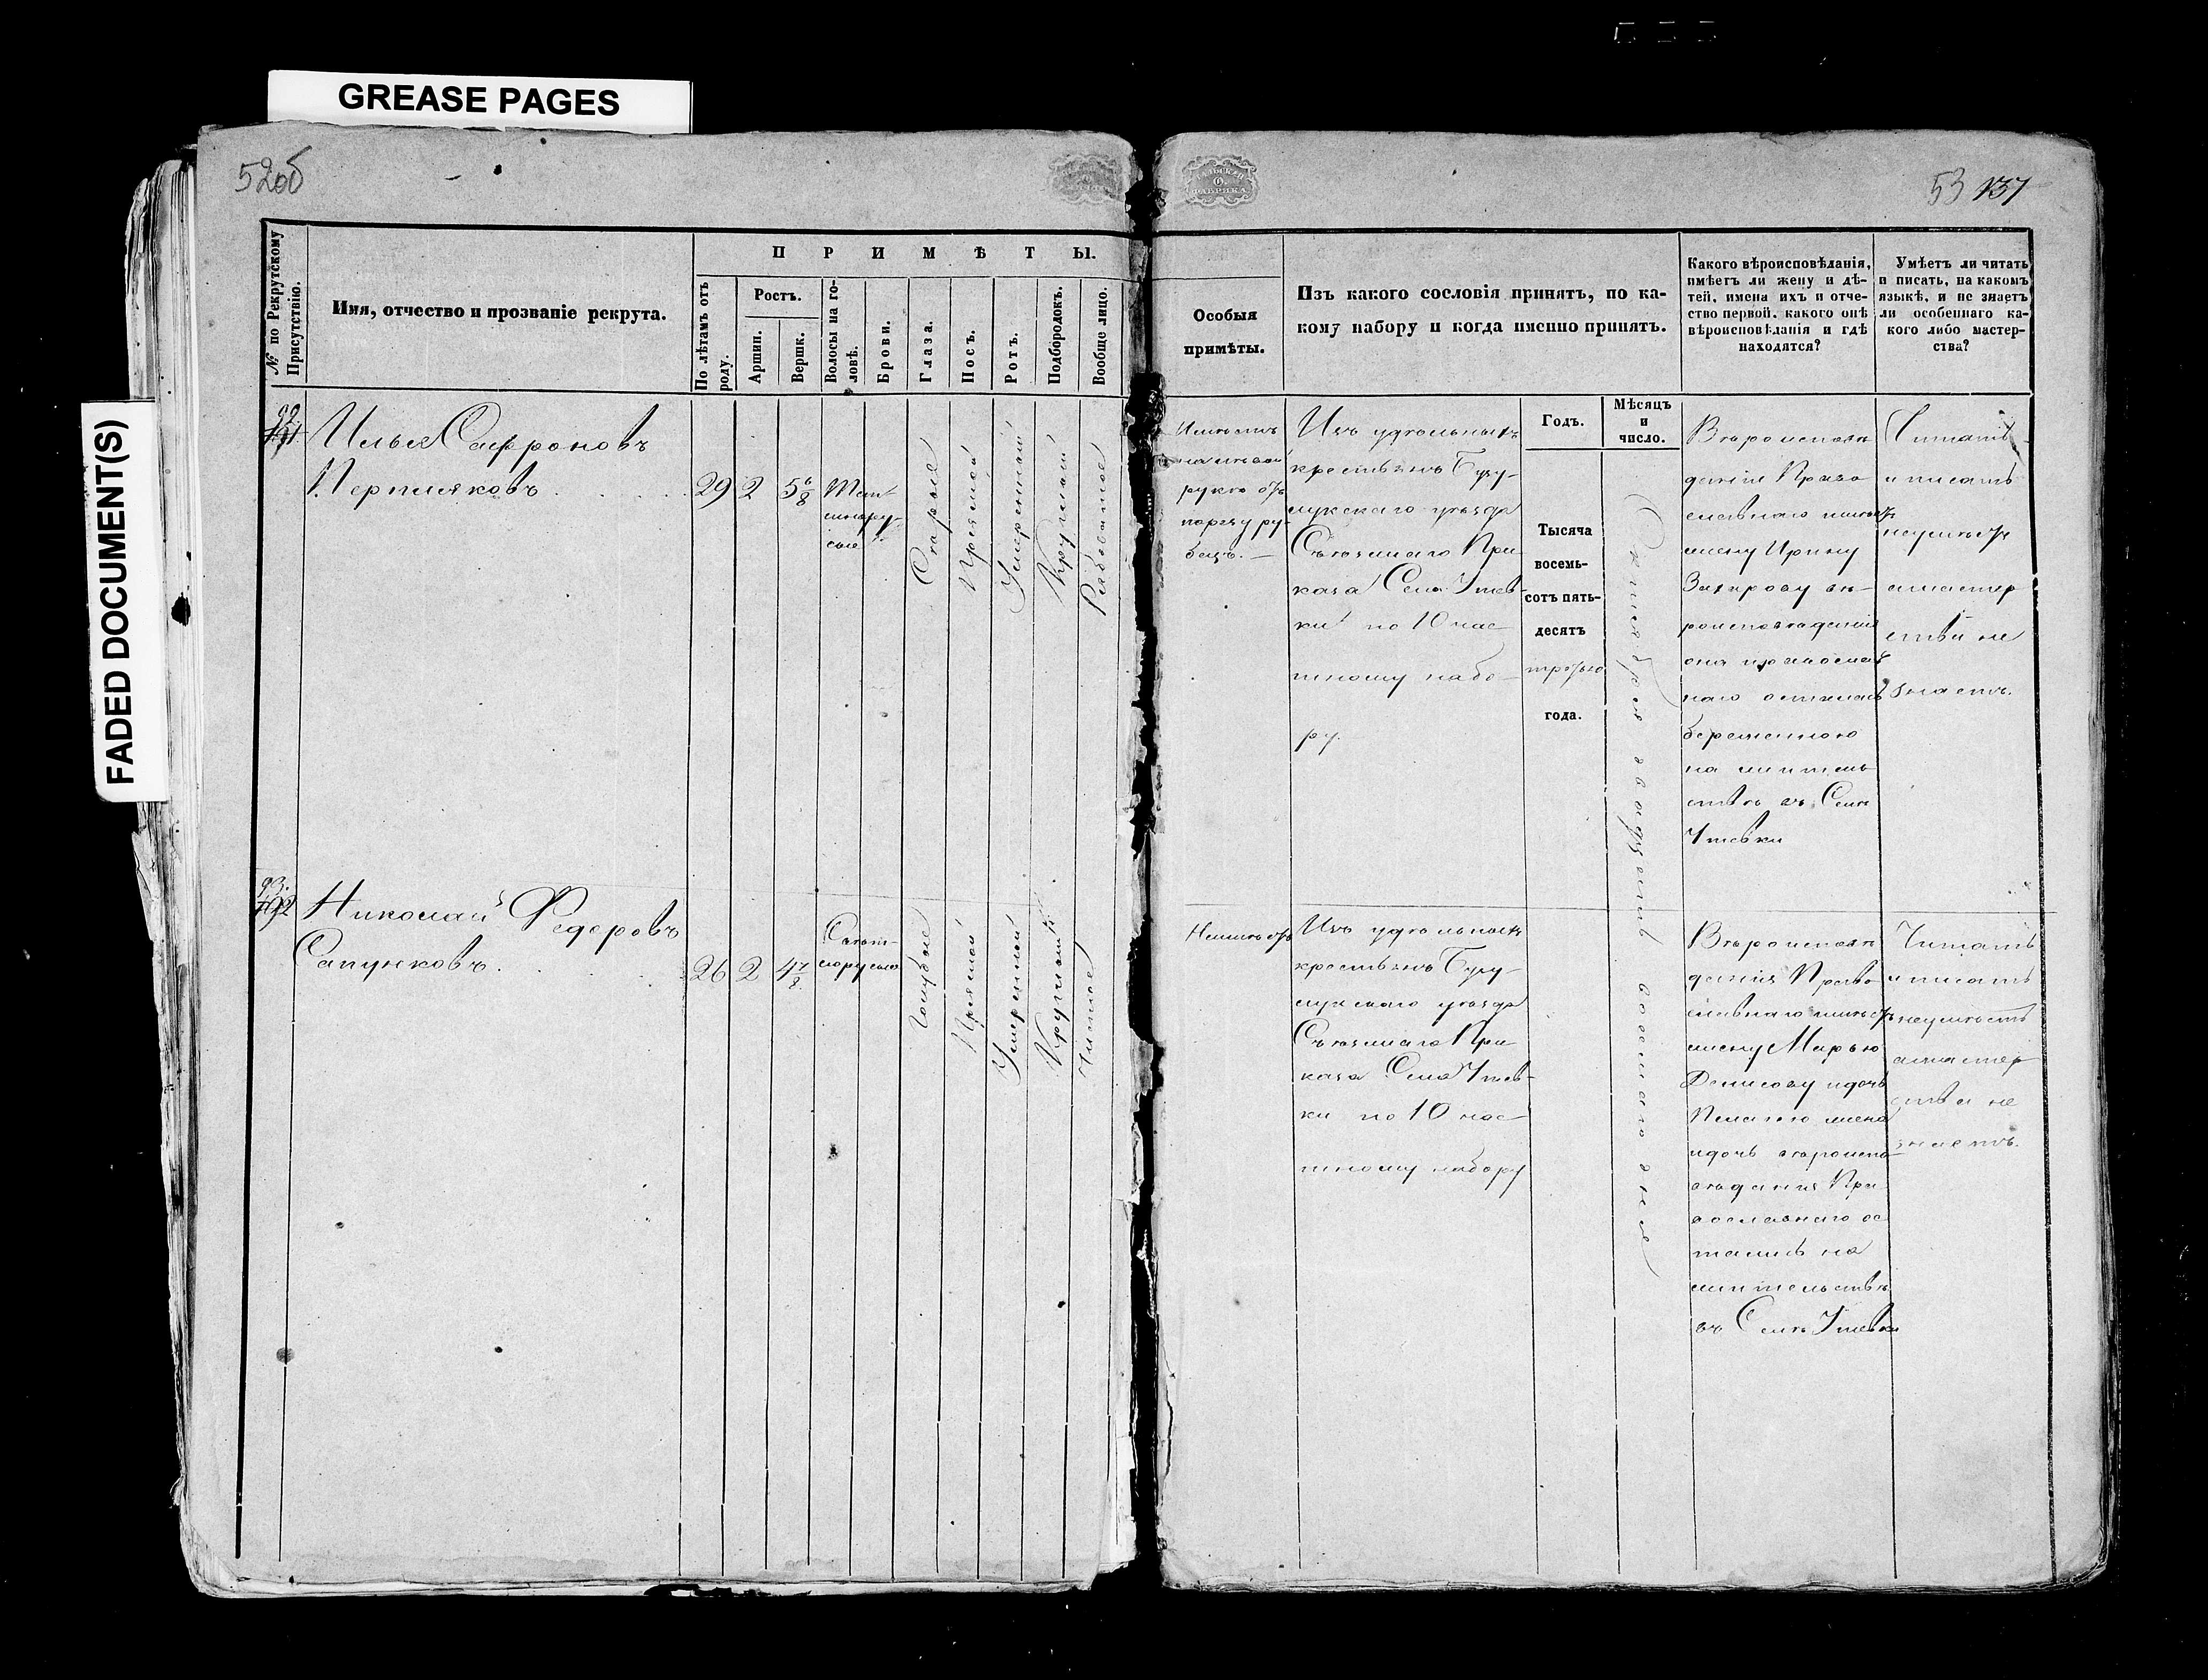 GREASE PAGES
FADED DOCUMENT(S)
52об
№ по Рекрутскому Присутствію.
Имя, отчество и прозваніе рекрута.
ПРИМѢТЫ.
По лѣтамъ отъ роду.
Ростъ.
Аршин.
Вершк.
Волосы на головѣ.
Брови.
Глаза.
Носъ.
Ротъ.
Подбородокъ.
Вообще лицо.
92.
191
Илья Сафроновъ
Перпиляковъ
29
2
5 6/8
Тем
нору
сые
Сѣрые
Прямой
Умеренный
Круглый
Рябоватое
93.
192
Николай Федеровъ
Сапунковъ
26
2
4 7/8
Светло
русые
Голубые
Прямой
Умеренной
Круглой
Чистое
53 137
Особыя
примѣты.
Изъ какого сословія принятъ, по ка-
кому набору и когда именно принятъ.
Какого вѣроисповѣданія,
имѣетъ ли жену и дѣ-
тей, имена ихъ и отче-
ство первой, какого онѣ
вѣроисповѣданія и гдѣ
находятся?
Умѣетъ ли читать
и писать, на какомъ
языкѣ, и не знаетъ
ли особеннаго ка-
кого либо мастер-
ства?
Годъ.
Мѣсяцъ
и
число.
Имѣетъ
на лѣвой
рукѣ отъ
порезу ру-
бецъ.
Изъ удѣльныхъ
крестьянъ Бузу-
лукскаго уѣзда
Съѣзжаго При
каза Села Утев-
ки по 10 час
тному набо-
ру.
Тысяча
восемь-
сотъ пять-
десятъ
третьяго
года.
Сентября двадцать восьмаго дня
Вѣроисповѣ
данія Право
славнаго имѣетъ
жену Ирину
Захарову вѣ-
роисповѣданія
она православ
наго осталась
беременною
на житель
ствѣ въ Селѣ
Утевки
Читать
и писать
неумѣетъ
а мастер
ства не
знаетъ.
Неимѣетъ
Изъ удѣльныхъ
крестьянъ Бузу-
лукскаго уѣзда
Съѣзжаго При
каза Села Утев-
ки по 10 час-
тному набору
Вѣроисповѣ
данія Право
славнаго имѣетъ
жену Марью
Денисову и дочь
Пелагею жена
и дочь вѣроиспо
вѣданія Пра
вославнаго ос
тались на
жительствѣ
въ Селѣ Утевки
Читать
и писать
неумѣетъ
а мастер
ства не
знаетъ.